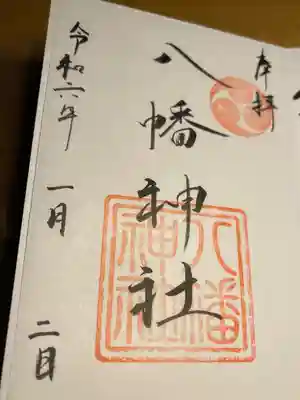 奉拝
八幡神社
八幡
神社
令和六年
一月
二日